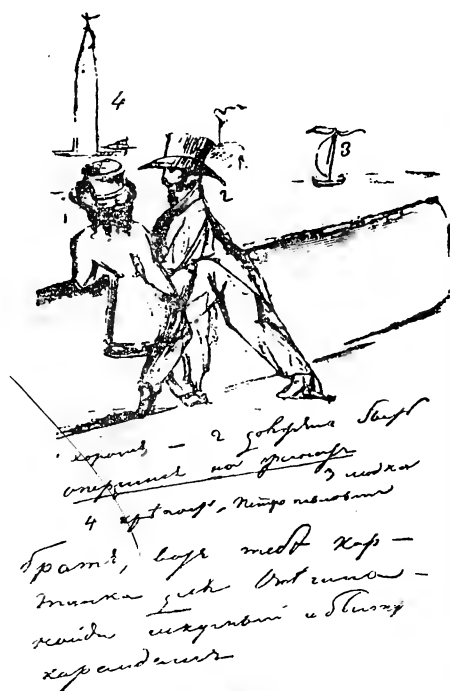 4
3
2
хорошъ — 2 долженъ быть
опершися на гранитъ
3 лодка
4 крѣпость, Петропавловская
Братъ, вотъ тебѣ кар—
тинка для Онѣгина—
найди искусный и быстрый
карандашъ